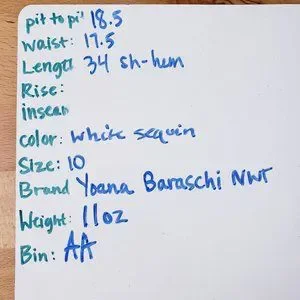 pit to pit 18.5
waist: 17.5
Length 34 sh-hem
Rise:
inseam
color: white sequin
Size: 10
Brand Yoana Baraschi NWT
Weight: 11oz
Bin: AA